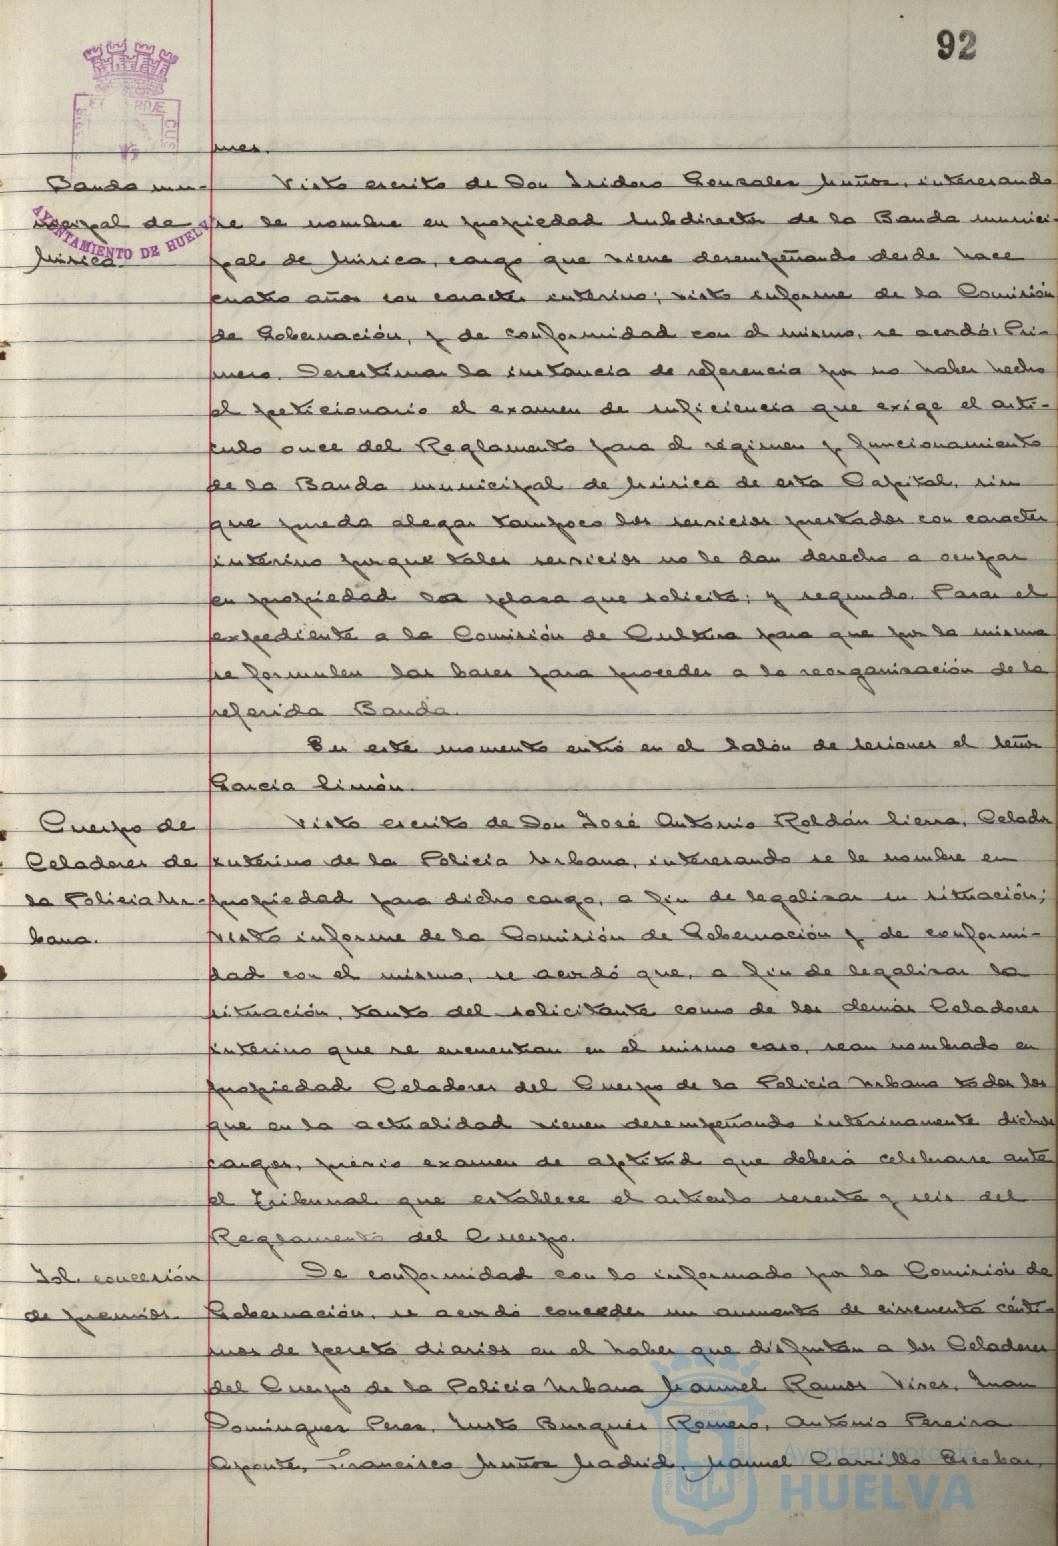 92
mes.
Banda mu-
nicipal de
Música.
Visto escrito de Don Isidoro Gonzalez Muñoz, interesando
se le nombre en propiedad subdirector de la Banda munici-
pal de Música, cargo que viene desempeñando desde hace
cuatro años con caracter interino; visto informe de la Comisión
de Gobernación, y de conformidad con el mismo, se acordó: Pri-
mero. Desestimar la instancia de referencia por no haber hecho
el peticionario el examen de suficiencia que exige el artí-
culo once del Reglamento para el régimen y funcionamiento
de la Banda municipal de Música de esta Capital, sin
que pueda alegar tampoco los servicios prestados con caracter
interino porque tales servicios no le dan derecho a ocupar
en propiedad la plaza que solicita; y segundo. Pasar el
expediente a la Comisión de Cultura para que por la misma
se formulen las bases para proceder a la reorganización de la
referida Banda.
En este momento entró en el Salón de sesiones el señor
García Limón.
Cuerpo de
Celadores de
la Policia Ur-
bana.
Visto escrito de Don José Antonio Roldán Sierra, Celador
interino de la Policia Urbana, interesando se le nombre en
propiedad para dicho cargo, a fin de legalizar su situación;
visto informe de la Comisión de Gobernación y de conformi-
dad con el mismo, se acordó que, a fin de legalizar la
situación, tanto del solicitante como de los demás Celadores
interino que se encuentran en el mismo caso, sean nombrado en
propiedad Celadores del Cuerpo de la Policia Urbana todos los
que en la actualidad vienen desempeñando interinamente dichos
cargos, previo examen de aptitud que deberá celebrarse ante
el Tribunal que establece el articulo sesenta y seis del
Reglamento del Cuerpo.
Sol. concesión
de premios.
De conformidad con lo informado por la Comisión de
Gobernación, se acordó conceder un aumento de cincuenta cénti-
mos de peseta diarios en el haber que disfrutan a los Celadores
del Cuerpo de la Policia Urbana Manuel Ramos Vives, Juan
Dominguez Perez, Justo Burgués Romero, Antonio Pereira
Aponte, Francisco Muñoz Madrid, Manuel Carrillo Escobar,
AYUNTAMIENTO DE HUELVA
Ayuntamiento de
HUELVA